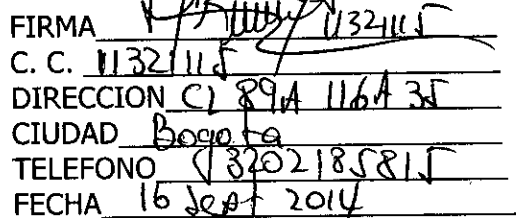 FIRMA 11321115
C. C. 11321115
DIRECCION Cl 89A 116A 35
CIUDAD Bogota
TELEFONO 3202185815
FECHA 16 Sept 2014